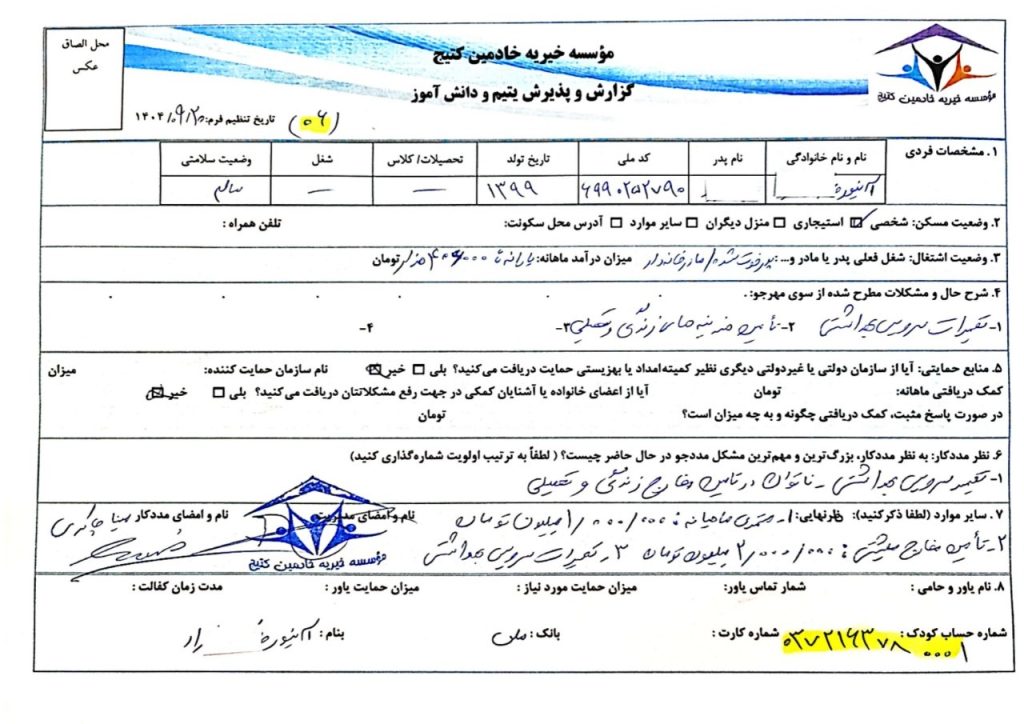 محل الصاق
عکس
مؤسسه خیریه خادمین کتیج
گزارش و پذیرش یتیم و دانش آموز
مؤسسه خیریه خادمین کتیج
تاریخ تنظیم فرم: ۱۴۰۴/۰۹/۲۰
(۰۶)
۱. مشخصات فردی
نام و نام خانوادگی نام پدر کد ملی تاریخ تولد تحصیلات/ کلاس شغل وضعیت سلامتی
۱۳۹۹ — — سالم
۲. وضعیت مسکن: شخصی استیجاری منزل دیگران سایر موارد آدرس محل سکونت: تلفن همراه :
۳. وضعیت اشتغال: شغل فعلی پدر یا مادر و... : پدر فوت شده / مادر خانه‌دار میزان درآمد ماهانه: یارانه تا هزار تومان
۴. شرح حال و مشکلات مطرح شده از سوی مهرجو:
۱- تعمیرات سرویس بهداشتی ۲- تأمین هزینه های زندگی و تحصیلی ۳- ۴-
۵. منابع حمایتی: آیا از سازمان دولتی یا غیردولتی دیگری نظیر کمیته‌امداد یا بهزیستی حمایت دریافت می‌کنید؟ بلی خیر نام سازمان حمایت کننده: میزان
کمک دریافتی ماهانه: تومان آیا از اعضای خانواده یا آشنایان کمکی در جهت رفع مشکلاتتان دریافت می‌کنید؟ بلی خیر
در صورت پاسخ مثبت، کمک دریافتی چگونه و به چه میزان است؟ تومان
۶. نظر مددکار: به نظر مددکار، بزرگ‌ترین و مهم‌ترین مشکل مددجو در حال حاضر چیست؟ ( لطفاً به ترتیب اولویت شماره‌گذاری کنید)
۱- تعمیر سرویس بهداشتی - ناتوان در تامین مخارج زندگی و تحصیلی
۷. سایر موارد (لطفا ذکر کنید): نظرنهایی: ۱- ماهیانه : ۱/۰۰۰/۰۰۰ میلیون تومان نام و امضای مددکار
۲- تأمین مخارج معیشتی : ۲/۰۰۰/۰۰۰ میلیون تومان ۳- تعمیرات سرویس بهداشتی
مؤسسه خیریه خادمین کتیج
۸. نام یاور و حامی : شمار تماس یاور: میزان حمایت مورد نیاز : میزان حمایت یاور : مدت زمان کفالت :
شماره حساب کودک : ۰۳۷۲۱۶۳۷۸ شماره کارت : بانک : ملی بنام :
۰۰۰۱